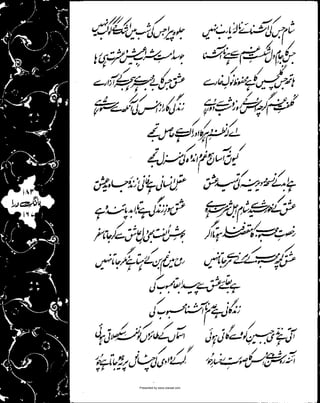 شام جس کی آشنائے نالۂ یارب نہیں جلوہ پیرا جس کی شب میں اشک کے کوکب نہیں
جس کا جامِ دل شکستِ غم سے ہے ناآشنا جو سدا مستِ شرابِ عیش و عشرت ہی رہا
ہاتھ جس گلچیں کا ہے محفوظ نوکِ خار سے عشق جس کا بے خبر ہے ہجر کے آزار سے
کلفتِ غم گرچہ اس کے روز و شب سے دور ہے زندگی کا راز اس کی آنکھ سے مستور ہے
اے کہ نظمِ دہر کا ادراک ہے حاصل تجھے
کیوں نہ آساں ہو غم و اندوہ کی منزل تجھے
ہے ابد کے نسخۂ دیرینہ کی تمہید عشق عقلِ انسانی ہے فانی زندۂ جاوید عشق
عشق کے خورشید سے شامِ اجل شرمندہ ہے عشق سوزِ زندگی ہے تا ابد پائندہ ہے
رخصتِ محبوب کا مقصد فنا ہوتا اگر جوشِ الفت بھی دلِ عاشق سے کر جاتا سفر
عشق کچھ محبوب کے مرنے سے مر جاتا نہیں روح میں غم بن کے رہتا ہے مگر جاتا نہیں
ہے بقائے عشق سے پیدا بقا محبوب کی
زندگانی ہے عدم ناآشنا محبوب کی
آتی ہے ندی جبینِ کوہ سے گاتی ہوئی آسماں کے طائروں کو نغمہ سکھلاتی ہوئی
آئنہ روشن ہے اس کا صورتِ رخسارِ حور گر کے وادی کی چٹانوں پر یہ ہو جاتا ہے چور
بانگِ درا